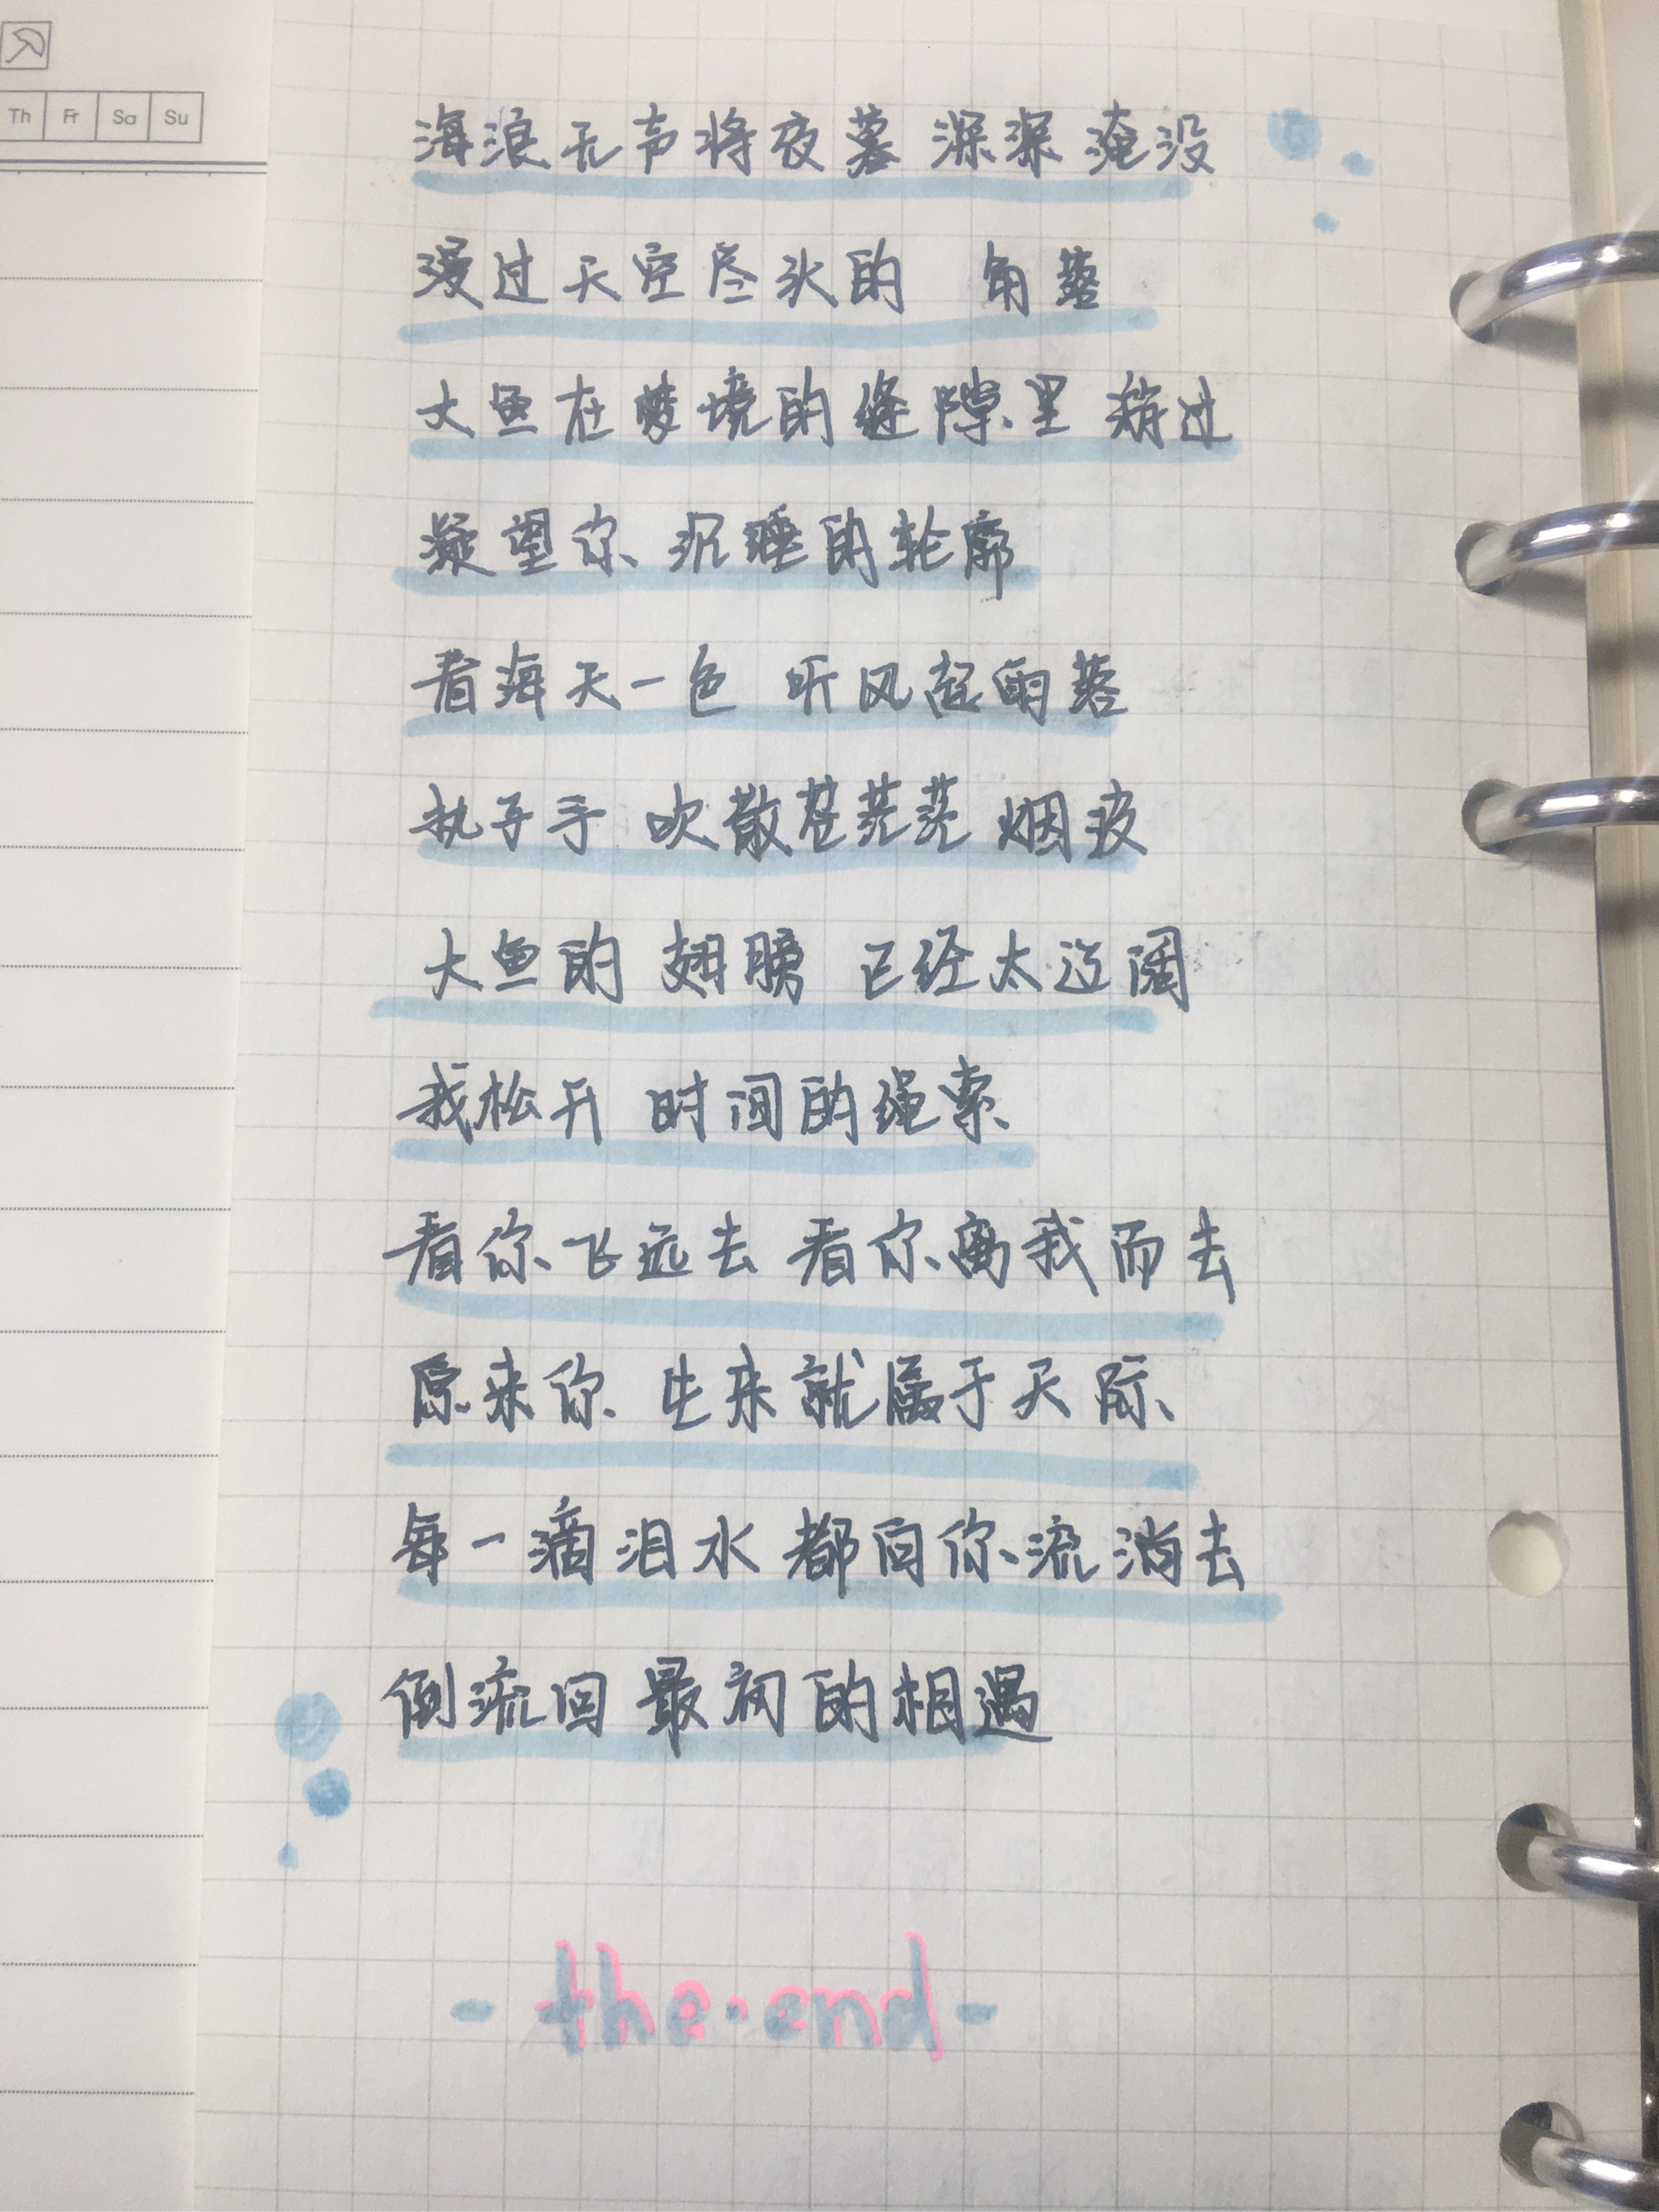 Th Fr Sa Su
海浪无声将夜幕 深深 淹没
漫过天空尽头的 角落
大鱼在梦境的缝隙里 游过
凝望你 沉睡的轮廓
看海天一色 听风起雨落
执子手 吹散苍茫茫 烟波
大鱼的 翅膀 已经太辽阔
我松开 时间的绳索
看你飞远去 看你离我而去
原来你 生来就属于天际
每一滴泪水 都向你流淌去
倒流回 最初的相遇
- the·end -